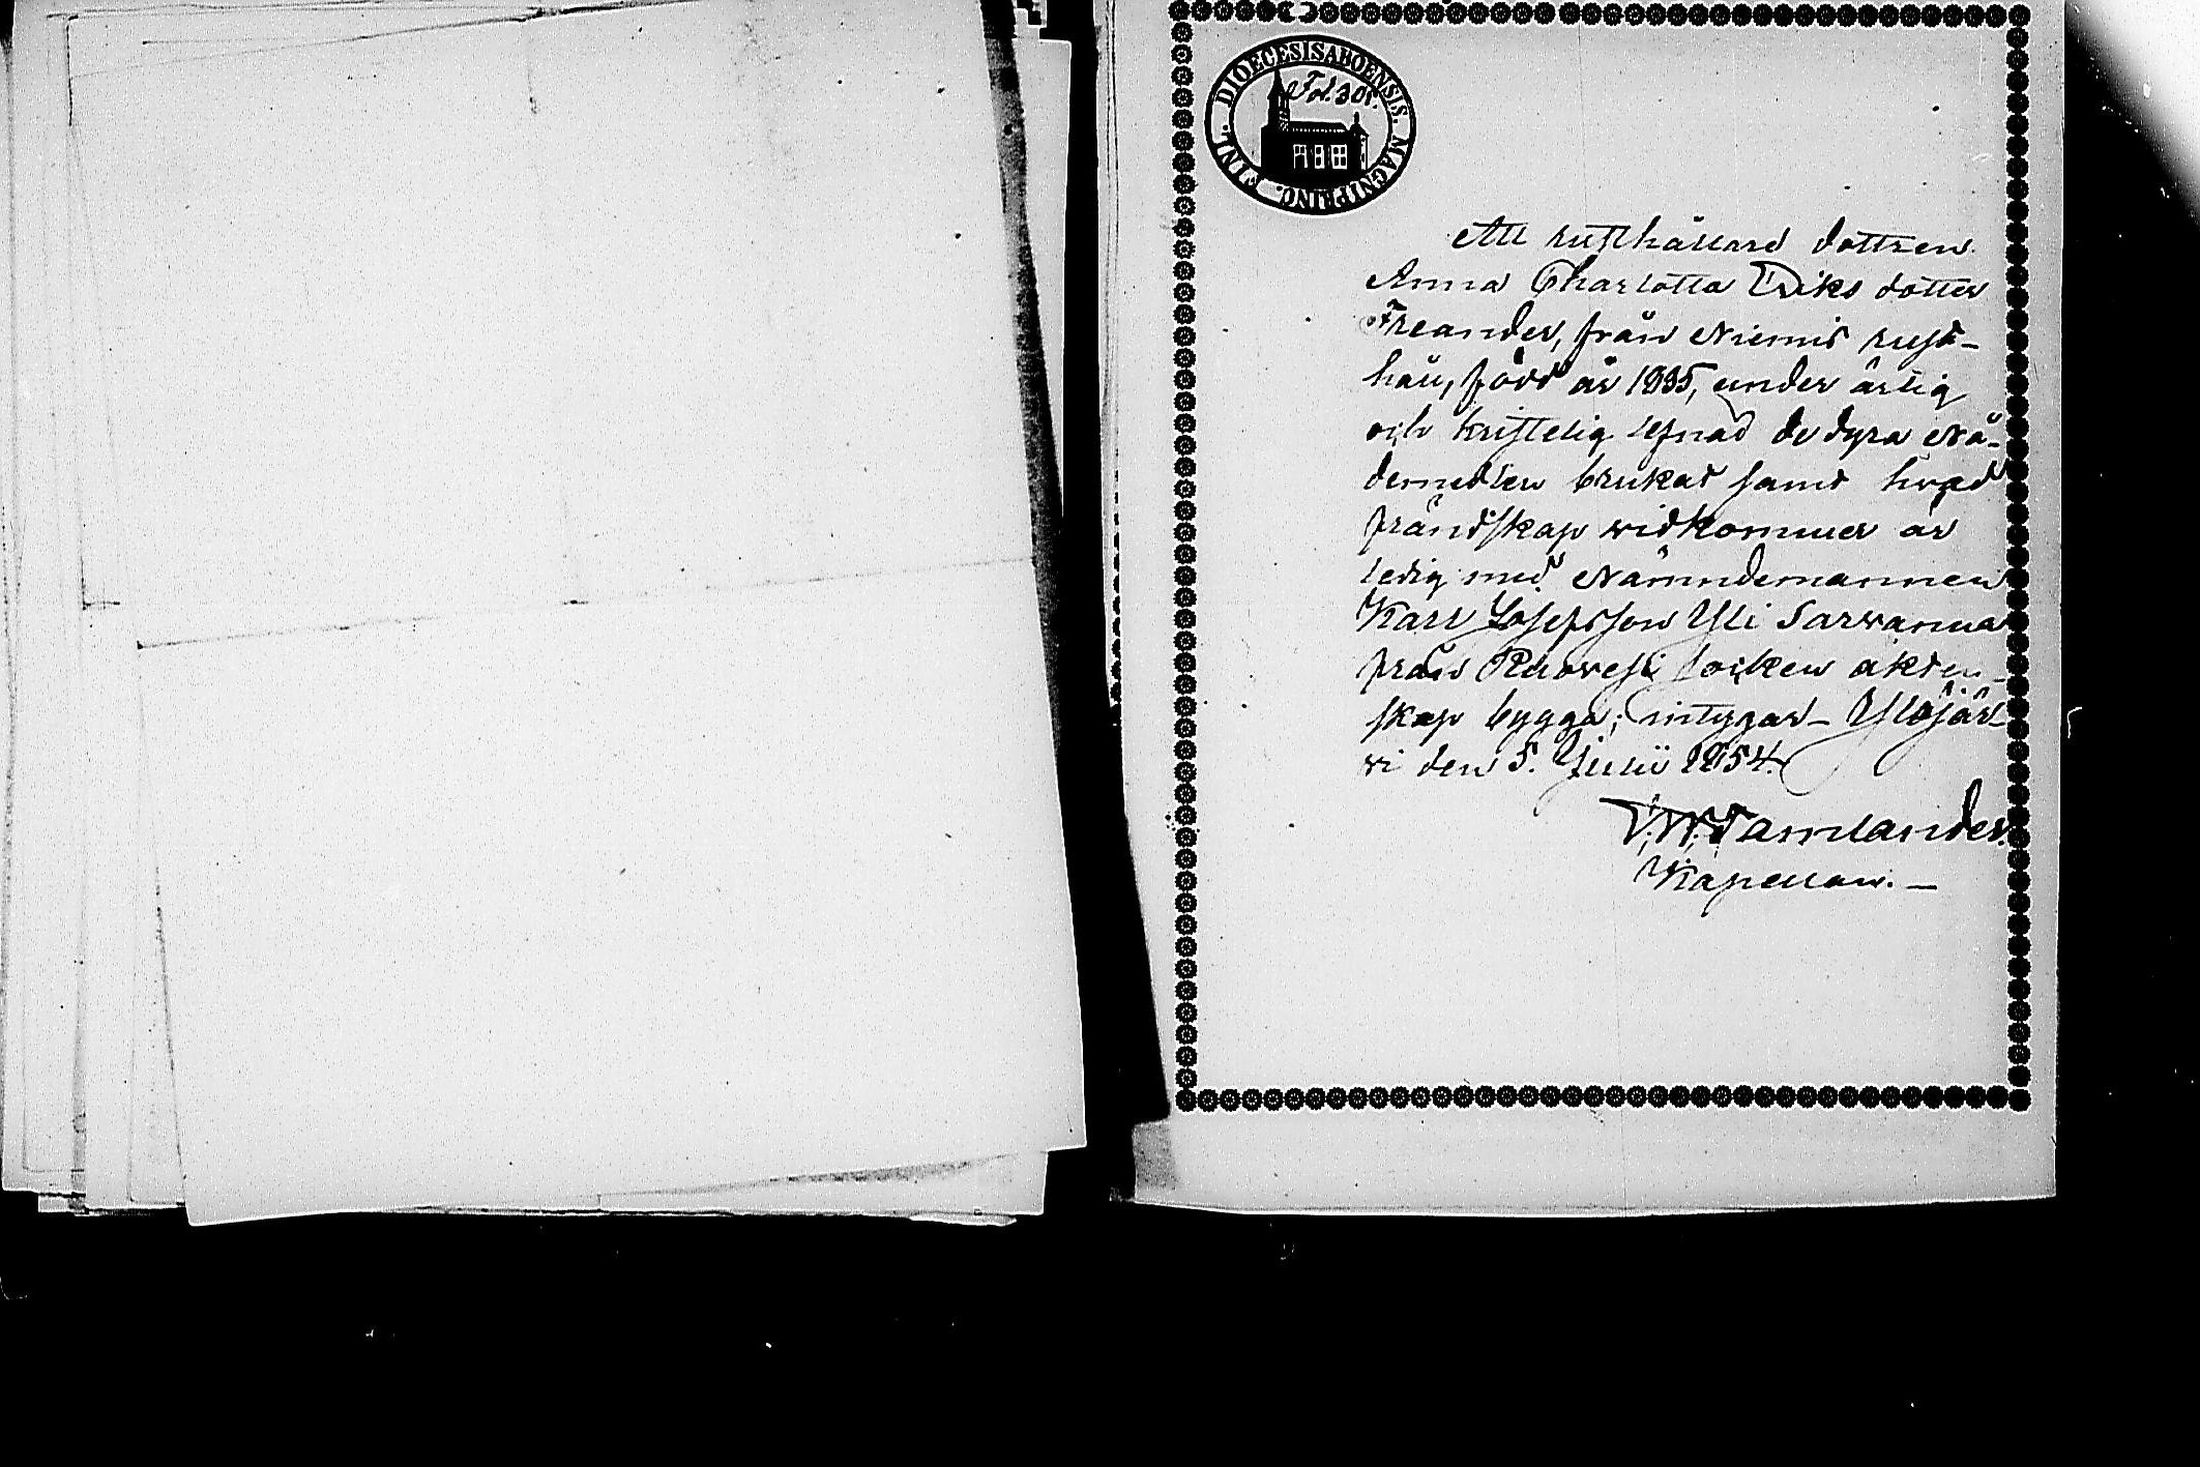 DIOECESIS ABOENSIS. MAGNI PRINC. FINL.
Fol. 301.
Att rusthållare dottren
Anna Charlotta Eriks dotter
Freander, från Niemis rust-
håll, född år 1835, under ärlig
och kristelig lefnad de dyra Nå-
demedlen brukat samt hvad
frändskap widkommer är
ledig med Nämndemannen
Karl Josefsson Yli Sarwanna
från Ruovesi socken äkten-
skap bygga; intygar - Ylöjär-
vi den 5. Julii 1854.
Tamlander.
Kapellan. -